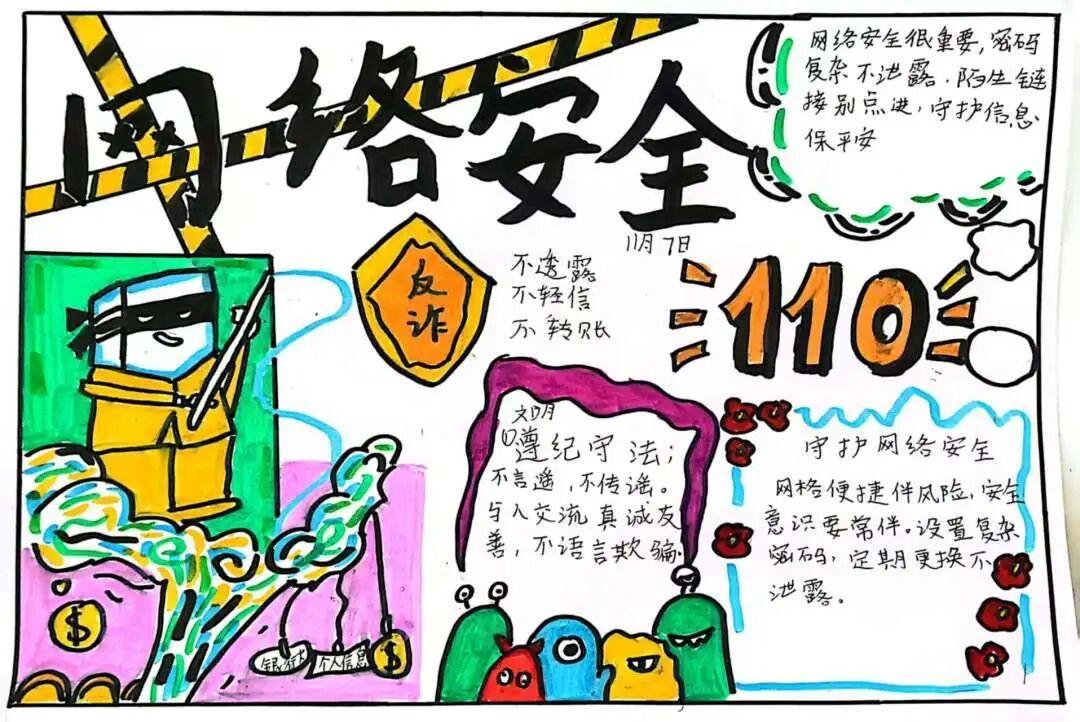 网络安全
11月7日
网络安全很重要,密码
复杂不泄露.陌生链
接别点进,守护信息
保平安
反诈
不透露
不轻信
不转账
110
文明
遵纪守法;
不言遥,不传谣。
与人交流真诚友
善,不语言欺骗.
守护网络安全
网格便捷伴风险,安全
意识要常伴。设置复杂
密码,定期更换不
泄露。
$
个人信息
$